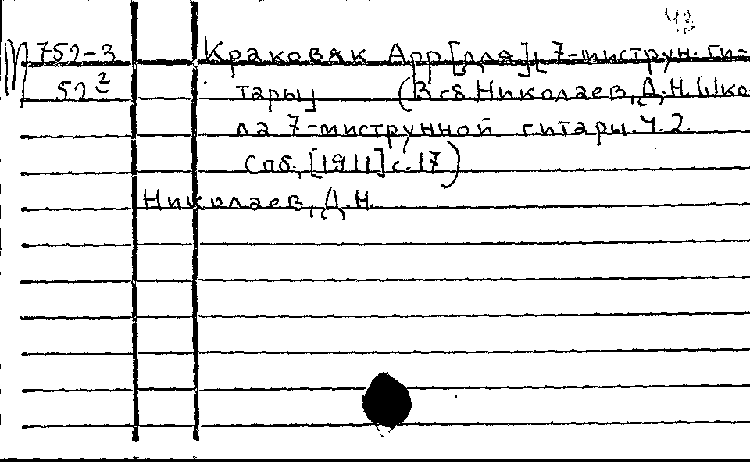 М 752-3 Краковяк Арр[для] [7-миструн. ги-
52² тары] (В сб. Николаев, Д.Н. Шко
ла 7-миструнной гитары. Ч.2.
Спб, [1911] с.17)
Николаев, Д.Н.